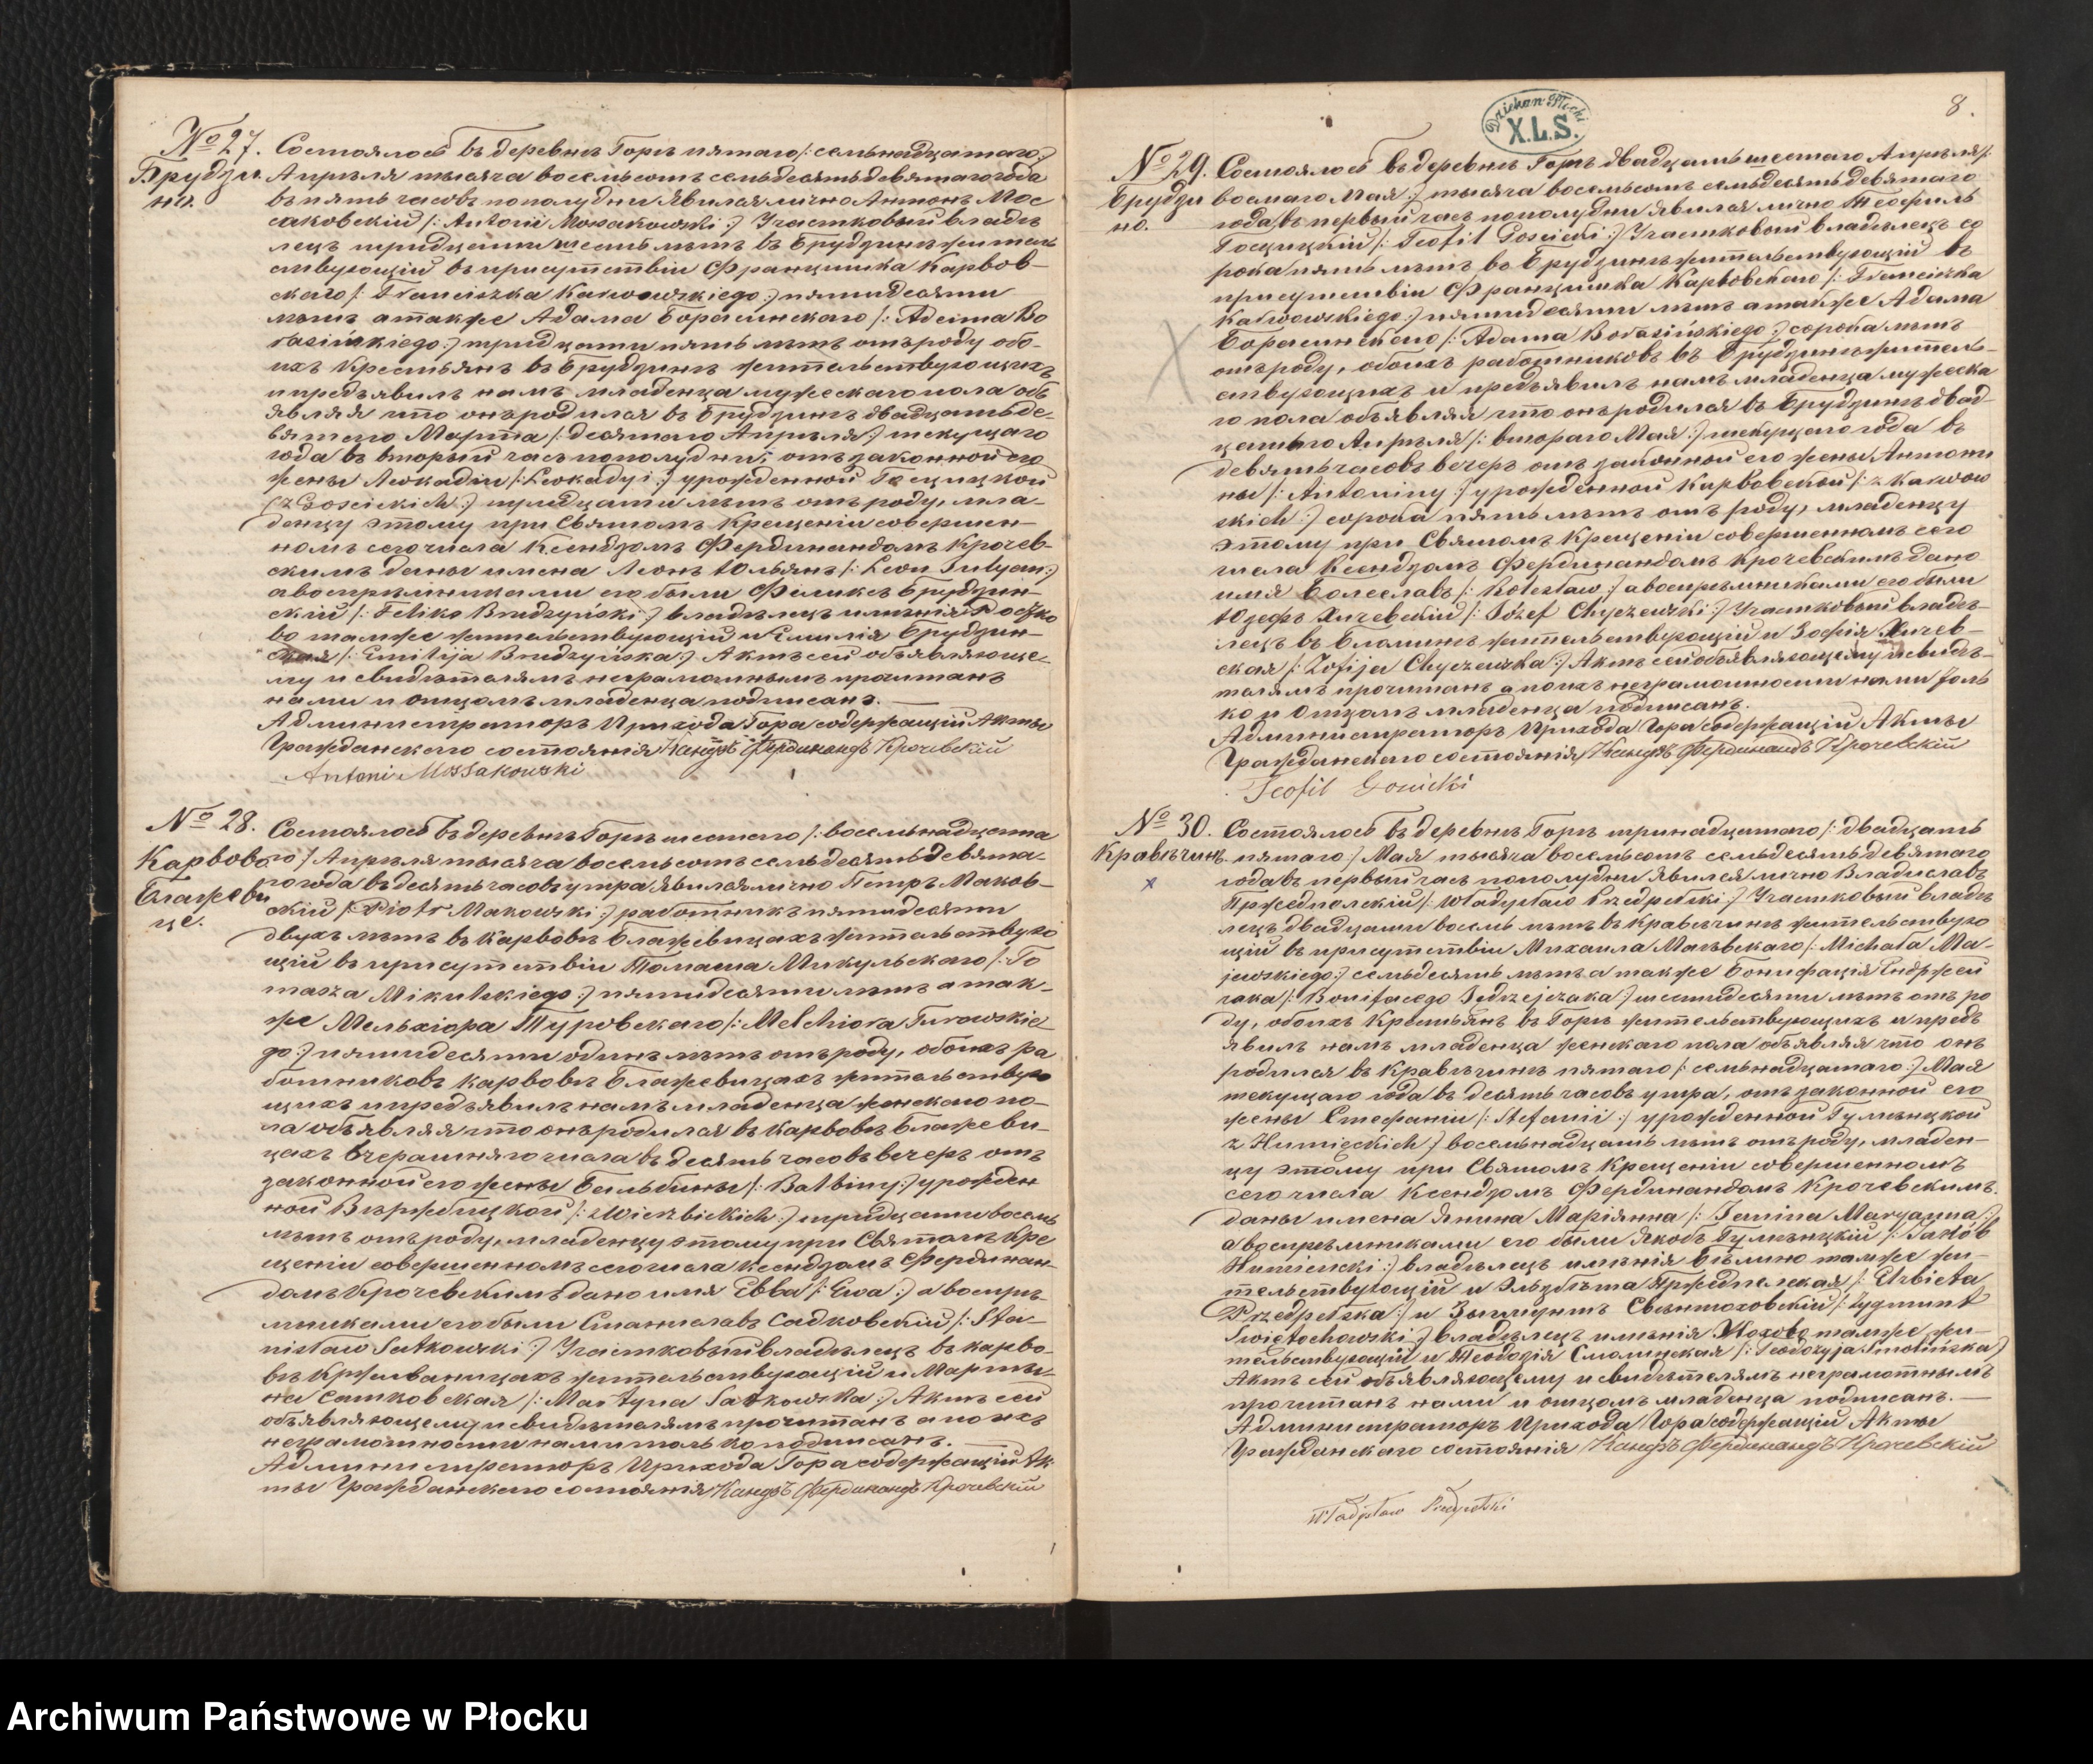 № 27.
Брудзи
но.
Состоялось въ деревнѣ Горѣ пятаго /: семьнадцатаго :/
Апрѣля тысяча восемьсотъ семьдесятъ девятаго года
въ пять часовъ пополудни явился лично Антонъ Мос
саковскій /: Antoni Mossakowski :/ Участковый владѣ
лецъ тридцати шесть лѣтъ въ Брудзинѣ житель
ствующій въ присутствіи Францишка Карвов-
скаго /: Franciszka Karwowskiego :/ пятидесяти
лѣтъ а также Адама Борасинскаго /: Adama Bo
rasińskiego :/ тридцати пять лѣтъ отъ роду обо-
ихъ Крестьянъ въ Брудзинѣ жительствующихъ
и предъявилъ намъ младенца мужескаго пола объ
являя что онъ родился въ Брудзинѣ двадцать де-
вятаго Марта /: десятаго Апрѣля :/ текущаго
года въ вторый часъ пополудни, отъ законной его
жены Леокадіи /: Leokadyi :/ урожденной Госцицкой
/: z Gościckich :/ тридцати лѣтъ отъ роду, мла-
денцу этому при Святомъ Крещеніи совершен-
номъ сего числа Ксендзомъ Фердинандомъ Крочев-
скимъ даны имена Леонъ Юльянъ /: Leon Julyan :/
а воспріемниками его были Феликсъ Брудзин-
скій /: Feliks Brudzyński :/ владѣлецъ имѣнія
во тамже жительствующій и Емилія Брудзин-
ская /: Emilija Brudzyńska :/ Актъ сей объявляюще-
му и свидѣтелямъ неграмотнымъ прочитанъ
нами и отцомъ младенца подписанъ.
Администраторъ Прихода Гора содержащій Акты
Гражданскаго состоянія Ксендзъ Фердинандъ Крочевскій
Antoni Mossakowski
№ 28.
Карвово
Блажеви
це.
Состоялось въ деревнѣ Горѣ шестаго /: восемьнадцата
го :/ Апрѣля тысяча восемьсотъ семьдесятъ девята-
го года въ десять часовъ утра явился лично Петръ Маков-
скій /: Piotr Makowski :/ работникъ пятидесяти
двухъ лѣтъ въ Карвовѣ Блажевицахъ жительствую
щій въ присутствіи Томаша Микульскаго /: To
masza Mikulskiego :/ пятидесяти лѣтъ а так-
же Мельхіора Туровскаго /: Melchiora Turowskie
go :/ пятидесяти одинъ лѣтъ отъ роду, обоихъ ра
ботниковъ Карвовѣ Блажевицахъ жительствую
щихъ и предъявилъ намъ младенца женскаго по-
ла объявляя что онъ родился въ Карвовѣ Блажеви-
цахъ вчерашняго числа въ десять часовъ вечеръ отъ
законной его жены Бальбины /: Balbiny :/ урожден
ной Вѣржбицкой /: z Wierzbickich :/ тридцати восемь
лѣтъ отъ роду, младенцу этому при Святомъ Кре
щеніи совершенномъ сего числа Ксендзомъ Фердинан-
домъ Крочевскимъ дано имя Евва /: Ewa :/ а воспріе-
мниками его были Станиславъ Садковскій /: Sta-
nisław Sutkowski :/ Участковый владѣлецъ въ Карво-
вѣ Крживаницахъ жительствующій и Марты-
на Сатковская /: Martyna Satkowska :/ Актъ сей
объявляющему и свидѣтелямъ прочитанъ а по ихъ
неграмотности нами только подписанъ.
Администраторъ Прихода Гора содержащій Ак
ты Гражданскаго состоянія Ксендзъ Фердинандъ Крочевскій
8.
Dziekan Płocki
X.L.S.
№ 29.
Брудзи
но.
Состоялось въ деревнѣ Горѣ двадцать шестаго Апрѣля /:
восмаго Мая :/ тысяча восемьсотъ семьдесятъ девятаго
года въ первый часъ пополудни явился лично Теофиль
Госцицкій /: Teofil Gościcki :/ Участковый владѣлецъ со
рока пять лѣтъ въ Брудзинѣ жительствующій въ
присутствіи Францишка Карвовскаго /: Franciszka
Karwowskiego :/ пятидесяти лѣтъ а также Адама
Борасинскаго /: Adama Borasińskiego :/ сорока лѣтъ
отъ роду, обоихъ работниковъ въ Брудзинѣ житель-
ствующихъ и предъявилъ намъ младенца мужеска
го пола объявляя что онъ родился въ Брудзинѣ двад-
цатаго Апрѣля /: втораго Мая :/ текущаго года въ
девять часовъ вечеръ отъ законной его жены Антони
ны /: Antoniny :/ урожденной Карвовской /: z Karwow
skich :/ сорока пять лѣтъ отъ роду, младенцу
этому при Святомъ Крещеніи совершенномъ сего
числа Ксендзомъ Фердинандомъ Крочевскимъ дано
имя Болеславъ /: Bolesław :/ а воспріемниками его были
Юзефъ Хичевскій /: Józef Chyczewski :/ Участковый владѣ-
лецъ въ жительствующій и Зофія Хичев-
ская /: Zofija Chyczewska :/ Актъ сей объявляющему и свидѣ-
телямъ прочитанъ а по ихъ неграмотности нами толь
ко и Отцомъ младенца подписанъ.
Администраторъ Прихода Гора содержащій Акты
Гражданскаго состоянія Ксендзъ Фердинандъ Крочевскій
Teofil Gościcki
№ 30.
Кравѣчинъ.
Состоялось въ деревнѣ Горѣ тринадцатаго /: двадцать
пятаго :/ Мая тысяча восемьсотъ семьдесятъ девятаго
года въ первый часъ пополудни явился лично Владиславъ
Пржедпелскій /: Władysław Przedpełski :/ Участковый владѣ
лецъ двадцати восемь лѣтъ въ Кравѣчинѣ жительствую
щій въ присутствіи Михаила Маѣвскаго /: Michała Ma-
jewskiego :/ семьдесятъ лѣтъ а также Бонифація Ендржей
чака /: Bonifacego Jędrzejczaka :/ шестидесяти лѣтъ отъ ро
ду, обоихъ Крестьянъ въ Горѣ жительствующихъ и предъ
явилъ намъ младенца женскаго пола объявляя что онъ
родился въ Кравѣчинѣ пятаго /: семьнадцатаго :/ Мая
текущаго года въ десять часовъ утра, отъ законной его
жены Стефаніи /: Stefanii :/ урожденной Гумѣнцкой
z Humięckich :/ восемьнадцать лѣтъ отъ роду, младен-
цу этому при Святомъ Крещеніи совершенномъ
сего числа Ксендзомъ Фердинандомъ Крочевскимъ
даны имена Янина Маріянна /: Janina Maryanna :/
а воспріемниками его были Якобъ Гумѣнцкій /: Jakób
Humięcki :/ владѣлецъ имѣнія Бѣлино тамже жи-
тельствующій и Эльжбѣта Пржедпелская /: Elżbieta
Przedpełska :/ и Зыгмунтъ Свѣнтоховскій /: Zygmunt
Świętochowski :/ владѣлецъ имѣнія тамже жи-
тельствующій и Теодозія Смолинская /: Teodozyja Smolińska :/
Актъ сей объявляющему и свидѣтелямъ неграмотнымъ
прочитанъ нами и отцомъ младенца подписанъ.
Администраторъ Прихода Гора содержащій Акты
Гражданскаго состоянія Ксендзъ Фердинандъ Крочевскій
Władysław Przedpełski
Archiwum Państwowe w Płocku